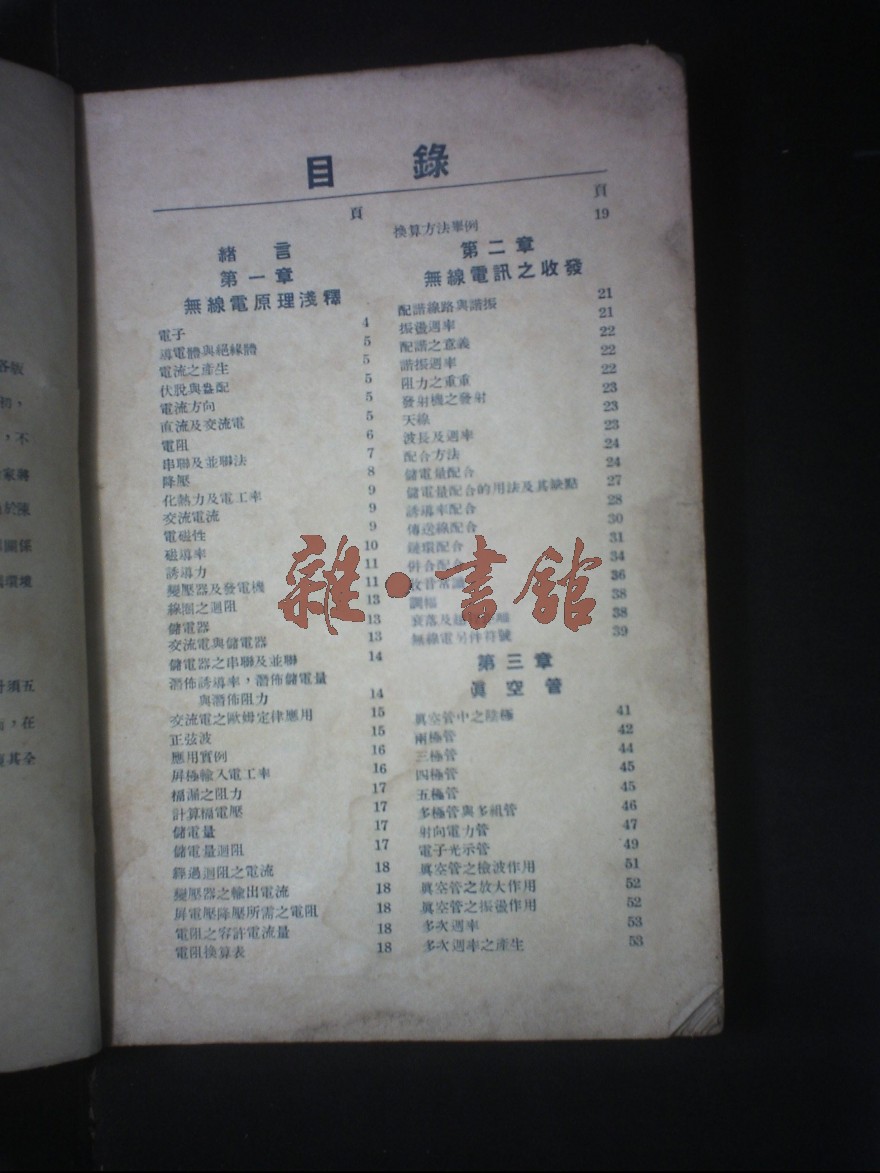 目錄
頁
緒言
第一章
無線電原理淺釋
電子 4
導電體與絕緣體 5
電流之產生 5
伏脫與盎配 5
電流方向 5
直流及交流電 5
電阻 6
串聯及並聯法 7
降壓 8
化熱力及電工率 9
交流電流 9
電磁性 9
磁導率 10
誘導力 11
變壓器及發電機 11
線圈之迴阻 13
儲電器 13
交流電與儲電器 13
儲電器之串聯及並聯 14
潛佈誘導率，潛佈儲電量
與潛佈阻力 14
交流電之歐姆定律應用 15
正弦波 15
應用實例 16
屏極輸入電工率 16
柵漏之阻力 17
計算柵電壓 17
儲電量 17
儲電量迴阻 17
經過迴阻之電流 18
變壓器之輸出電流 18
屏電壓降壓所需之電阻 18
電阻之容許電流量 18
電阻換算表 18
頁
換算方法舉例 19
第二章
無線電訊之收發
配諧線路與諧振 21
振盪週率 21
配諧之意義 22
諧振週率 22
阻力之重重 22
發射機之發射 23
天線 23
波長及週率 23
配合方法 24
儲電量配合 24
儲電量配合的用法及其缺點 27
誘導率配合 28
傳送線配合 30
鏈環配合 31
併合配合 34
收音常識 36
調幅 38
衰落及 38
無線電另件符號 39
第三章
眞空管
眞空管中之陰極 41
兩極管 42
三極管 44
四極管 45
五極管 45
多極管與多組管 46
射向電力管 47
電子光示管 49
眞空管之檢波作用 51
眞空管之放大作用 52
眞空管之振盪作用 52
多次週率 53
多次週率之產生 53
雜·書館
各版
初，
，不
家將
於陳
關係
環境
計須五
，在
其全